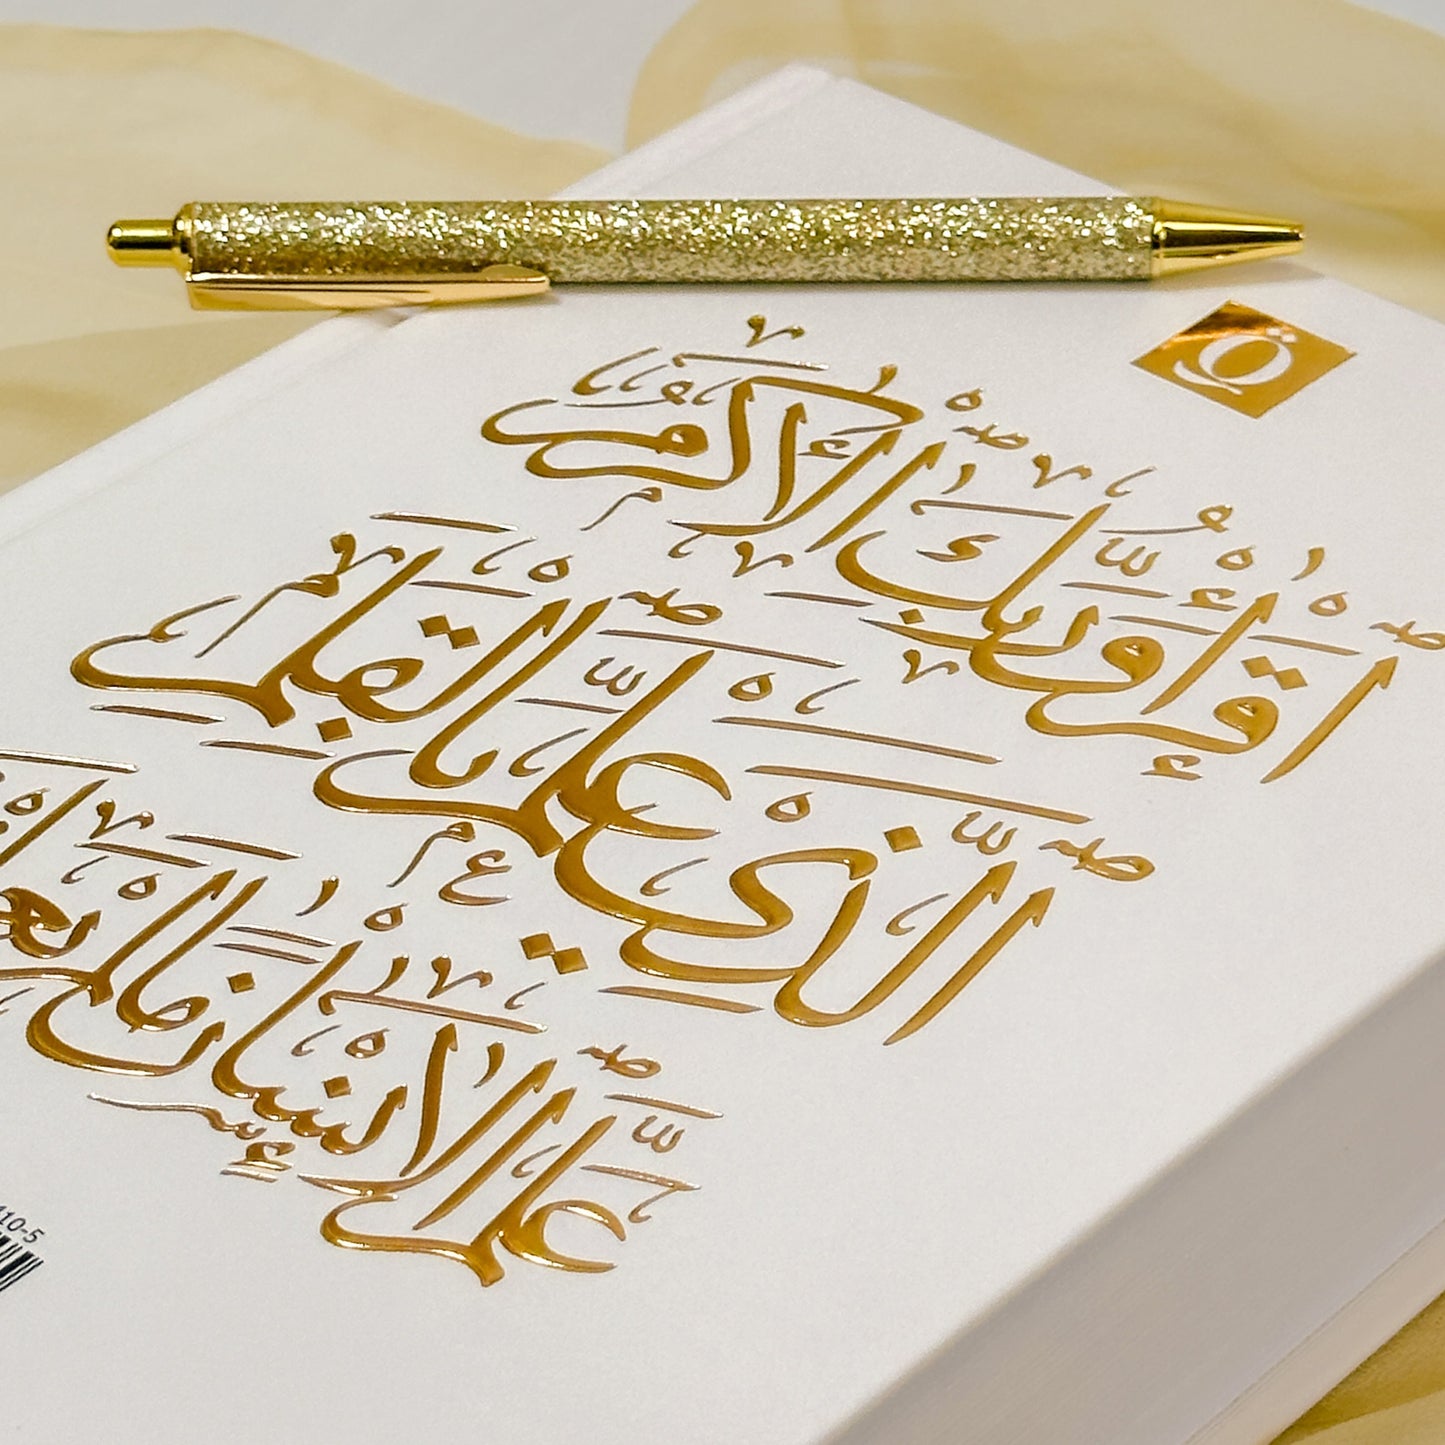 ٱقۡرَأۡ وَرَبُّكَ ٱلۡأَكۡرَمُ
ٱلَّذِي عَلَّمَ بِٱلۡقَلَمِ
عَلَّمَ ٱلۡإِنسَٰنَ مَا لَمۡ
10-5